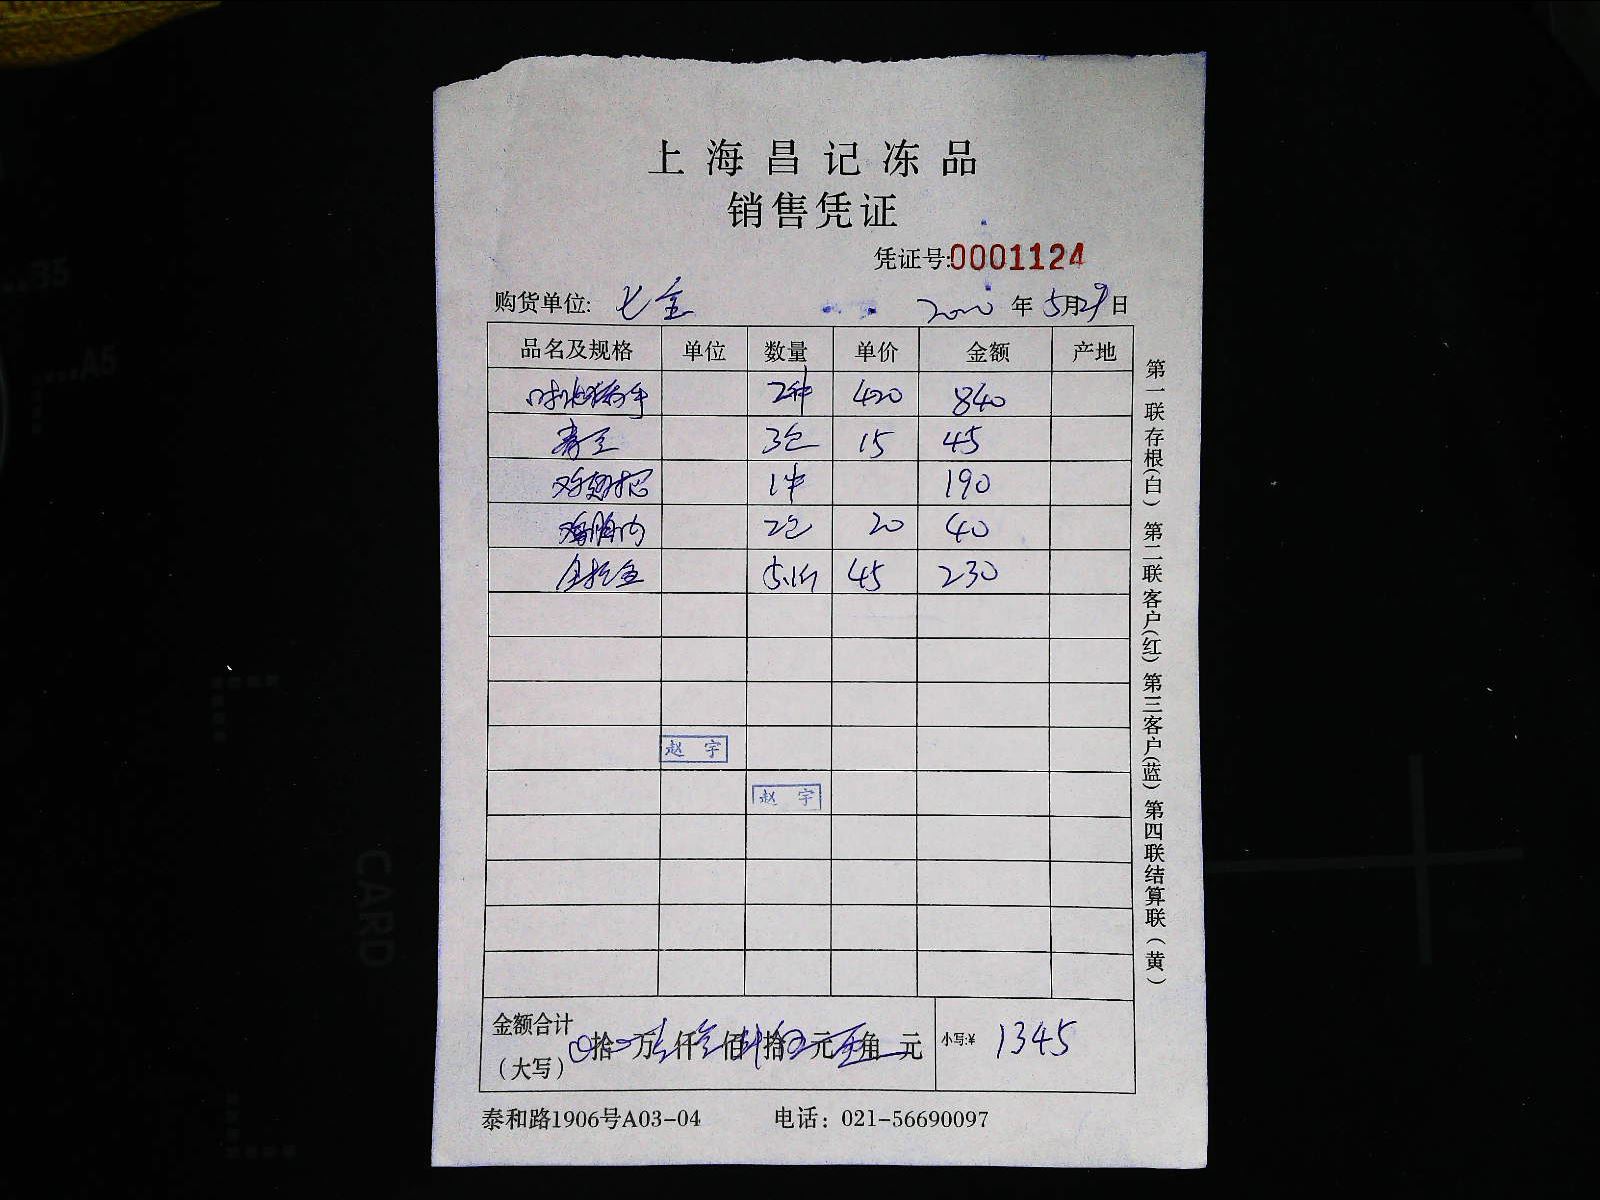 上海昌记冻品
销售凭证
凭证号:0001124
购货单位: 七宝 2020 年 5月29日
品名及规格 单位 数量 单价 金额 产地
2件 420 840
青豆 3包 15 45
鸡翅根 1件 190
鸡胸肉 2包 20 40
5.1斤 45 230
赵宇
赵宇
金额合计
(大写) 拾 万 仟 佰 拾 元 角 元 小写:¥ 1345
泰和路1906号A03-04 电话：021-56690097
第一联存根(白) 第二联客户(红) 第三客户(蓝) 第四联结算联(黄)